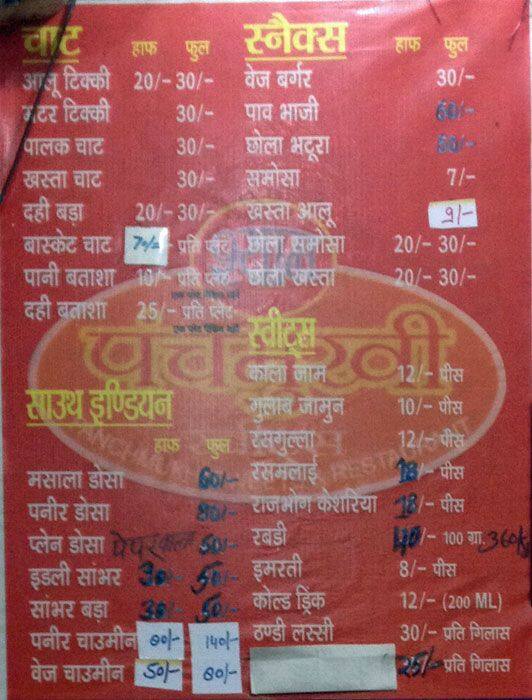 चाट हाफ फुल
आलू टिक्की 20/- 30/-
मटर टिक्की 30/-
पालक चाट 30/-
खस्ता चाट 30/-
दही बड़ा 20/- 30/-
बास्केट चाट 70/- प्रति प्लेट
पानी बताशा 10/- प्रति प्लेट
दही बताशा 25/- प्रति प्लेट
साउथ इण्डियन
हाफ फुल
मसाला डोसा 60/-
पनीर डोसा 80/-
प्लेन डोसा पेपर 50/-
इडली सांभर 30/- 50/-
सांभर बड़ा 30/- 50/-
पनीर चाउमीन 80/- 140/-
वेज चाउमीन 50/- 80/-
स्नैक्स हाफ फुल
वेज बर्गर 30/-
पाव भाजी 60/-
छोला भटूरा 60/-
समोसा 7/-
खस्ता आलू 9/-
छोला समोसा 20/- 30/-
छोला खस्ता 20/- 30/-
स्वीट्स
काला जाम 12/- पीस
गुलाब जामुन 10/- पीस
रसगुल्ला 12/- पीस
रसमलाई 18/- पीस
राजभोग केशरिया 18/- पीस
रबड़ी 40/- 100 ग्रा. 360/
इमरती 8/- पीस
कोल्ड ड्रिंक 12/- (200 ML)
ठण्डी लस्सी 30/- प्रति गिलास
25/- प्रति गिलास
पंचमुखी
RESTAURANT